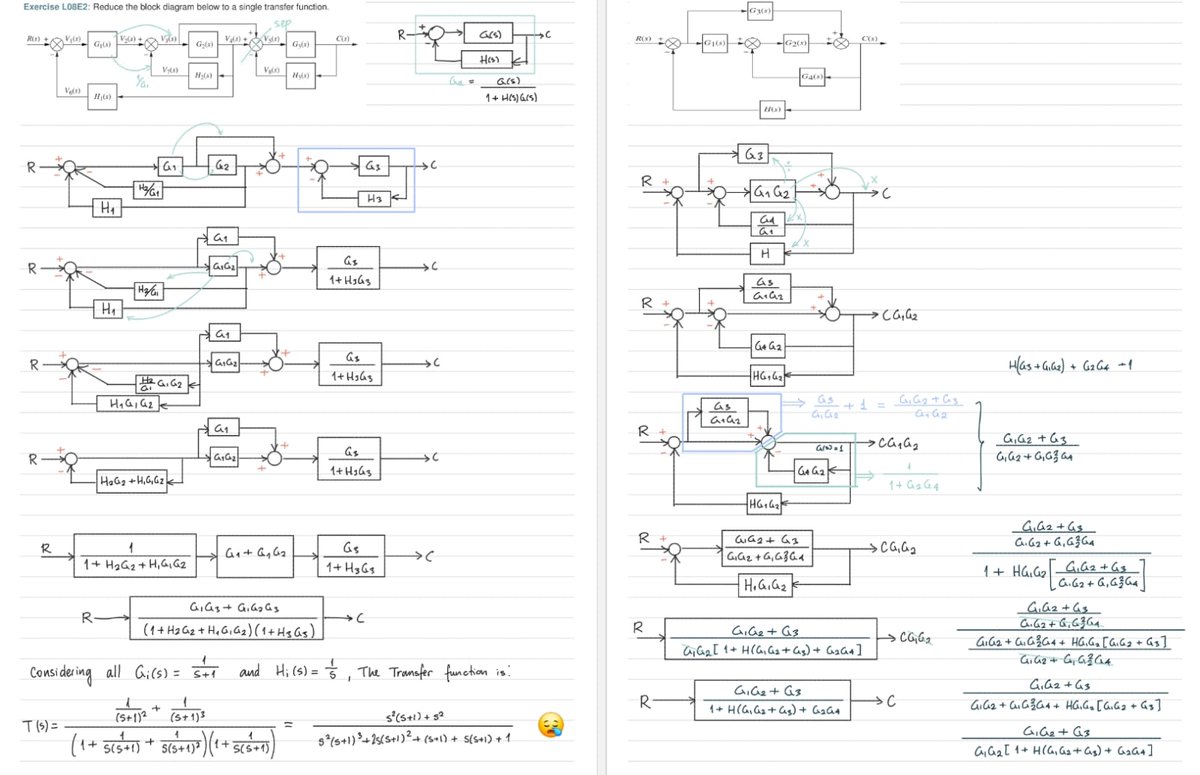 Exercise L08E2: Reduce the block diagram below to a single transfer function.
sep
R(s) + V₁(s) G₁(s) V₂(s) + V₃(s) G₂(s) V₄(s) + V₅(s) G₃(s) C(s)
V₇(s) H₂(s) V₈(s) H₃(s)
V₆(s) H₁(s)
1/G₁
R + G(s) C
H(s)
= G(s) / 1 + H(s)G(s)
R + G1 G2 + + + G3 C
H2/G1
H1 H3
G1
R + G1G2 + + G3 / 1+H3G3 C
H2/G1
H1
G1
R + G1G2 + + G3 / 1+H3G3 C
H2/G1 G1G2
H1G1G2
G1
R + G1G2 + + G3 / 1+H3G3 C
H2G2 + H1G1G2
R 1 / 1 + H2G2 + H1G1G2 G1 + G1G2 G3 / 1+H3G3 C
R G1G3 + G1G2G3 / (1+H2G2 + H1G1G2)(1+H3G3) C
Considering all Gi(s) = 1/s+1 and Hi(s) = 1/s, The Transfer function is:
T(s) = 1/(s+1)² + 1/(s+1)³ / (1 + 1/s(s+1) + 1/s(s+1)²)(1 + 1/s(s+1)) = s²(s+1) + s² / s²(s+1)³ + 2s(s+1)² + (s+1) + s(s+1) + 1
G₃(s)
R(s) + G₁(s) + G₂(s) + C(s)
G₄(s)
H(s)
G3 ÷
R + + G1G2 + x C
G4/G1 x
H x
G3/G1G2
R + + + CG1G2
G4G2
HG1G2
H(G3 + G1G2) + G2G4 + 1
G3/G1G2 ⇒ G3/G1G2 + 1 = G1G2 + G3 / G1G2
R + + G(s)=1 CG1G2
G4G2 ⇒ 1 / 1 + G2G4
HG1G2
G1G2 + G3 / G1G2 + G1G2²G4
R + G1G2 + G3 / G1G2 + G1G2²G4 CG1G2
H1G1G2
G1G2 + G3 / G1G2 + G1G2²G4
1 + HG1G2 [G1G2 + G3 / G1G2 + G1G2²G4]
R G1G2 + G3 / G1G2[1 + H(G1G2 + G3) + G2G4] CG1G2
G1G2 + G3 / G1G2 + G1G2²G4
G1G2 + G1G2²G4 + HG1G2[G1G2 + G3] / G1G2 + G1G2²G4
R G1G2 + G3 / 1 + H(G1G2 + G3) + G2G4 C
G1G2 + G3 / G1G2 + G1G2²G4 + HG1G2[G1G2 + G3]
G1G2 + G3 / G1G2[1 + H(G1G2 + G3) + G2G4]